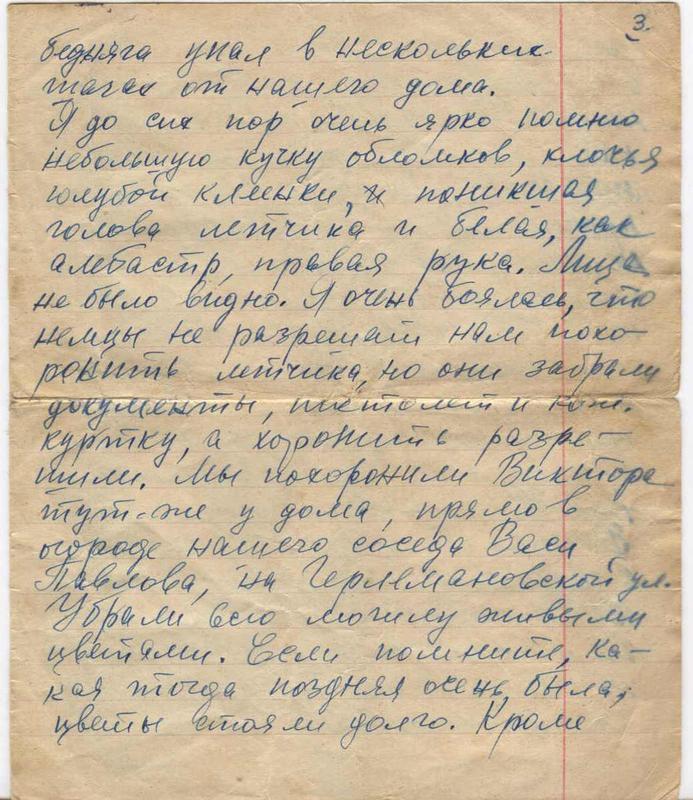 3.
бедняга упал в нескольких
шагах от нашего дома.
Я до сих пор очень ярко помню
небольшую кучку обломков, клочья
голубой клинки, и поникшая
голова летчика и белая, как
алебастр, правая рука. Лица
не было видно. Я очень боялась, что
немцы не разрешат нам похо-
ронить летчика, но они забрали
документы, пистолет и кож.
куртку, а хоронить разре-
шили. Мы похоронили Виктора
тут-же у дома, прямо в
огороде нашего соседа Васи
Павлова, на Герлемановской ул.
Убрали всю могилу живыми
цветами. Если помните, ка-
кая тогда поздняя очень была,
цветы стояли долго. Кроме